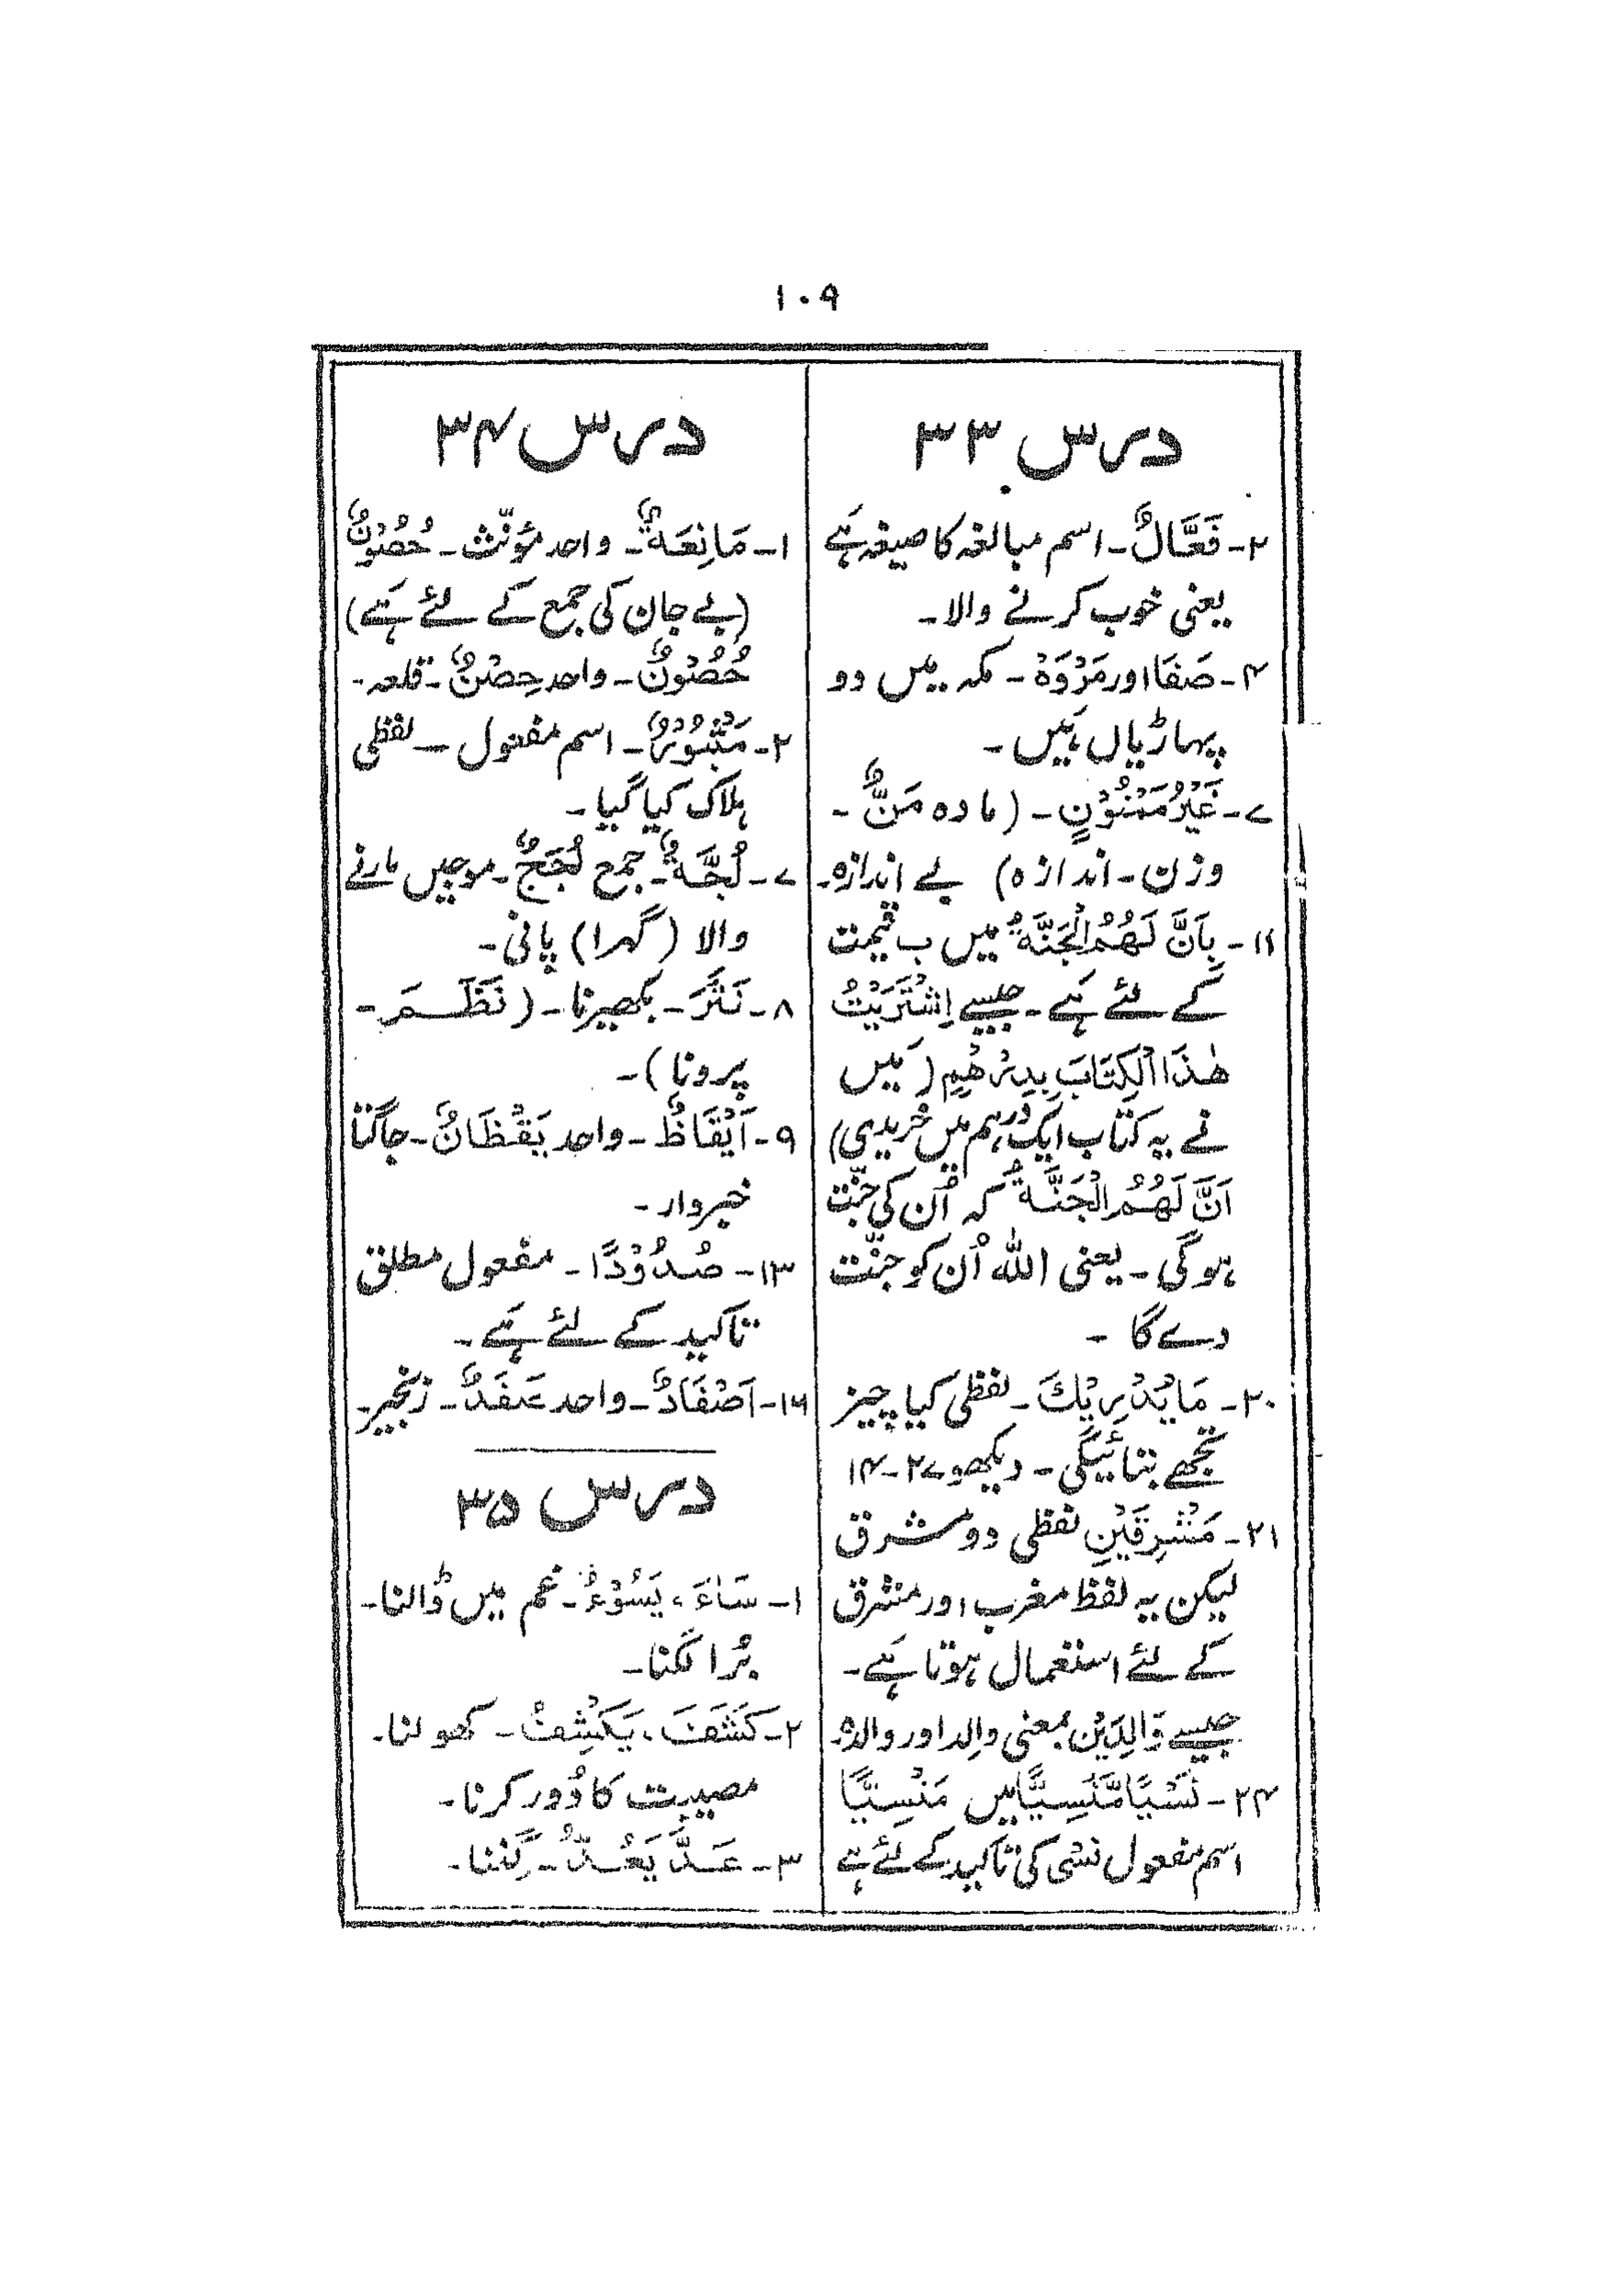 ۱۰۹
درس ۳۳
۲۔ فَعَّالٌ۔ اسم مبالغہ کا صیغہ ہَے
یعنی خوب کرنے والا۔
۴۔ صَفَا اور مَرْوَہْ۔ مکہ میں دو
پہاڑیاں ہَیں۔
۷۔ غَیْرُ مَمْنُوْنٍ۔ (مادہ مَنٌّ۔
وزن۔ اندازہ) بے اندازہ۔
۱۱۔ بِاَنَّ لَهُمُ الْجَنَّةُ میں ب قیمت
کے لئے ہَے۔ جیسے اِشْتَرَیْتُ
هٰذَا الْکِتَابَ بِدِرْهَمٍ (مَیں
نے یہ کتاب ایک درہم میں خریدی)
اَنَّ لَهُمُ الْجَنَّةُ کہ اُن کی جنّت
ہوگی۔ یعنی اللہ اُن کو جنّت
دے گا ۔
۲۰۔ مَا یُدْرِیْكَ۔ لفظی کیا چیز
تجھے بتائیگی۔ دیکھو ۲۷-۱۴
۲۱۔ مَشْرِقَیْنِ لفظی دو مشرق
لیکن یہ لفظ مغرب اور مشرق
کے لئے استعمال ہوتا ہَے۔
جیسے وَالِدَیْن بمعنی والِد اور والدہ
۲۴۔ نَسْیًا مَّنْسِیًّا میں مَنْسِیًّا
اسم مفعول نسْی کی تاکید کے لئے ہَے
درس ۳۴
۱۔ مَانِعَةٌ۔ واحد مؤنّث۔ حُصُوْنٌ
(بے جان کی جمع کے لئے ہَے)
حُصُوْنٌ۔ واحد حِصْنٌ۔ قلعہ۔
۲۔ مَثْبُوْرٌ۔ اسم مفعول ۔ لفظی
ہلاک کیا گیا۔
۷۔ لُجَّةٌ۔ جمع لُجَجٌ۔ موجیں مارنے
والا (گہرا) پانی۔
۸۔ نَثَرَ۔ بکھیرنا۔ (نَظَمَ۔
پرونا)۔
۹۔ اَیْقَاظٌ۔ واحد یَقْظَانٌ۔ جاگتا
خبردار۔
۱۳۔ صُدُوْدًا۔ مفعول مطلق
تاکید کے لئے ہَے۔
۱۶۔ اَصْفَادٌ۔ واحد صَفَدٌ۔ زنجیر۔
درس ۳۵
۱۔ سَاءَ، یَسُوْءُ۔ غم میں ڈالنا۔
بُرا لگنا۔
۲۔ کَشَفَ، یَکْشِفُ۔ کھولنا۔
مصیبت کا دُور کرنا۔
۳۔ عَدَّ یَعُدُّ۔ گِننا۔